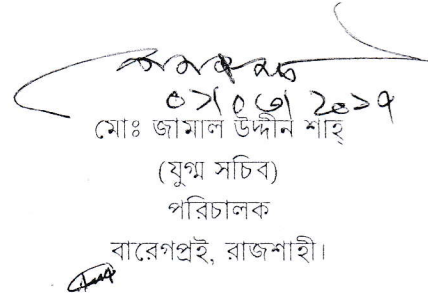 ০১/০৩/২০১৭
মোঃ জামাল উদ্দীন শাহ্
(যুগ্ম সচিব)
পরিচালক
বারেগপ্রই, রাজশাহী।